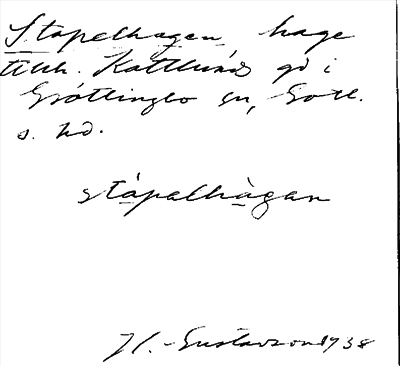 Stapelhagen, hage
tillh. Kattlunds gd i
Grötlingbo sn, Gotl.
s. hd.
stápalhàgan
H. Gustavson 1938